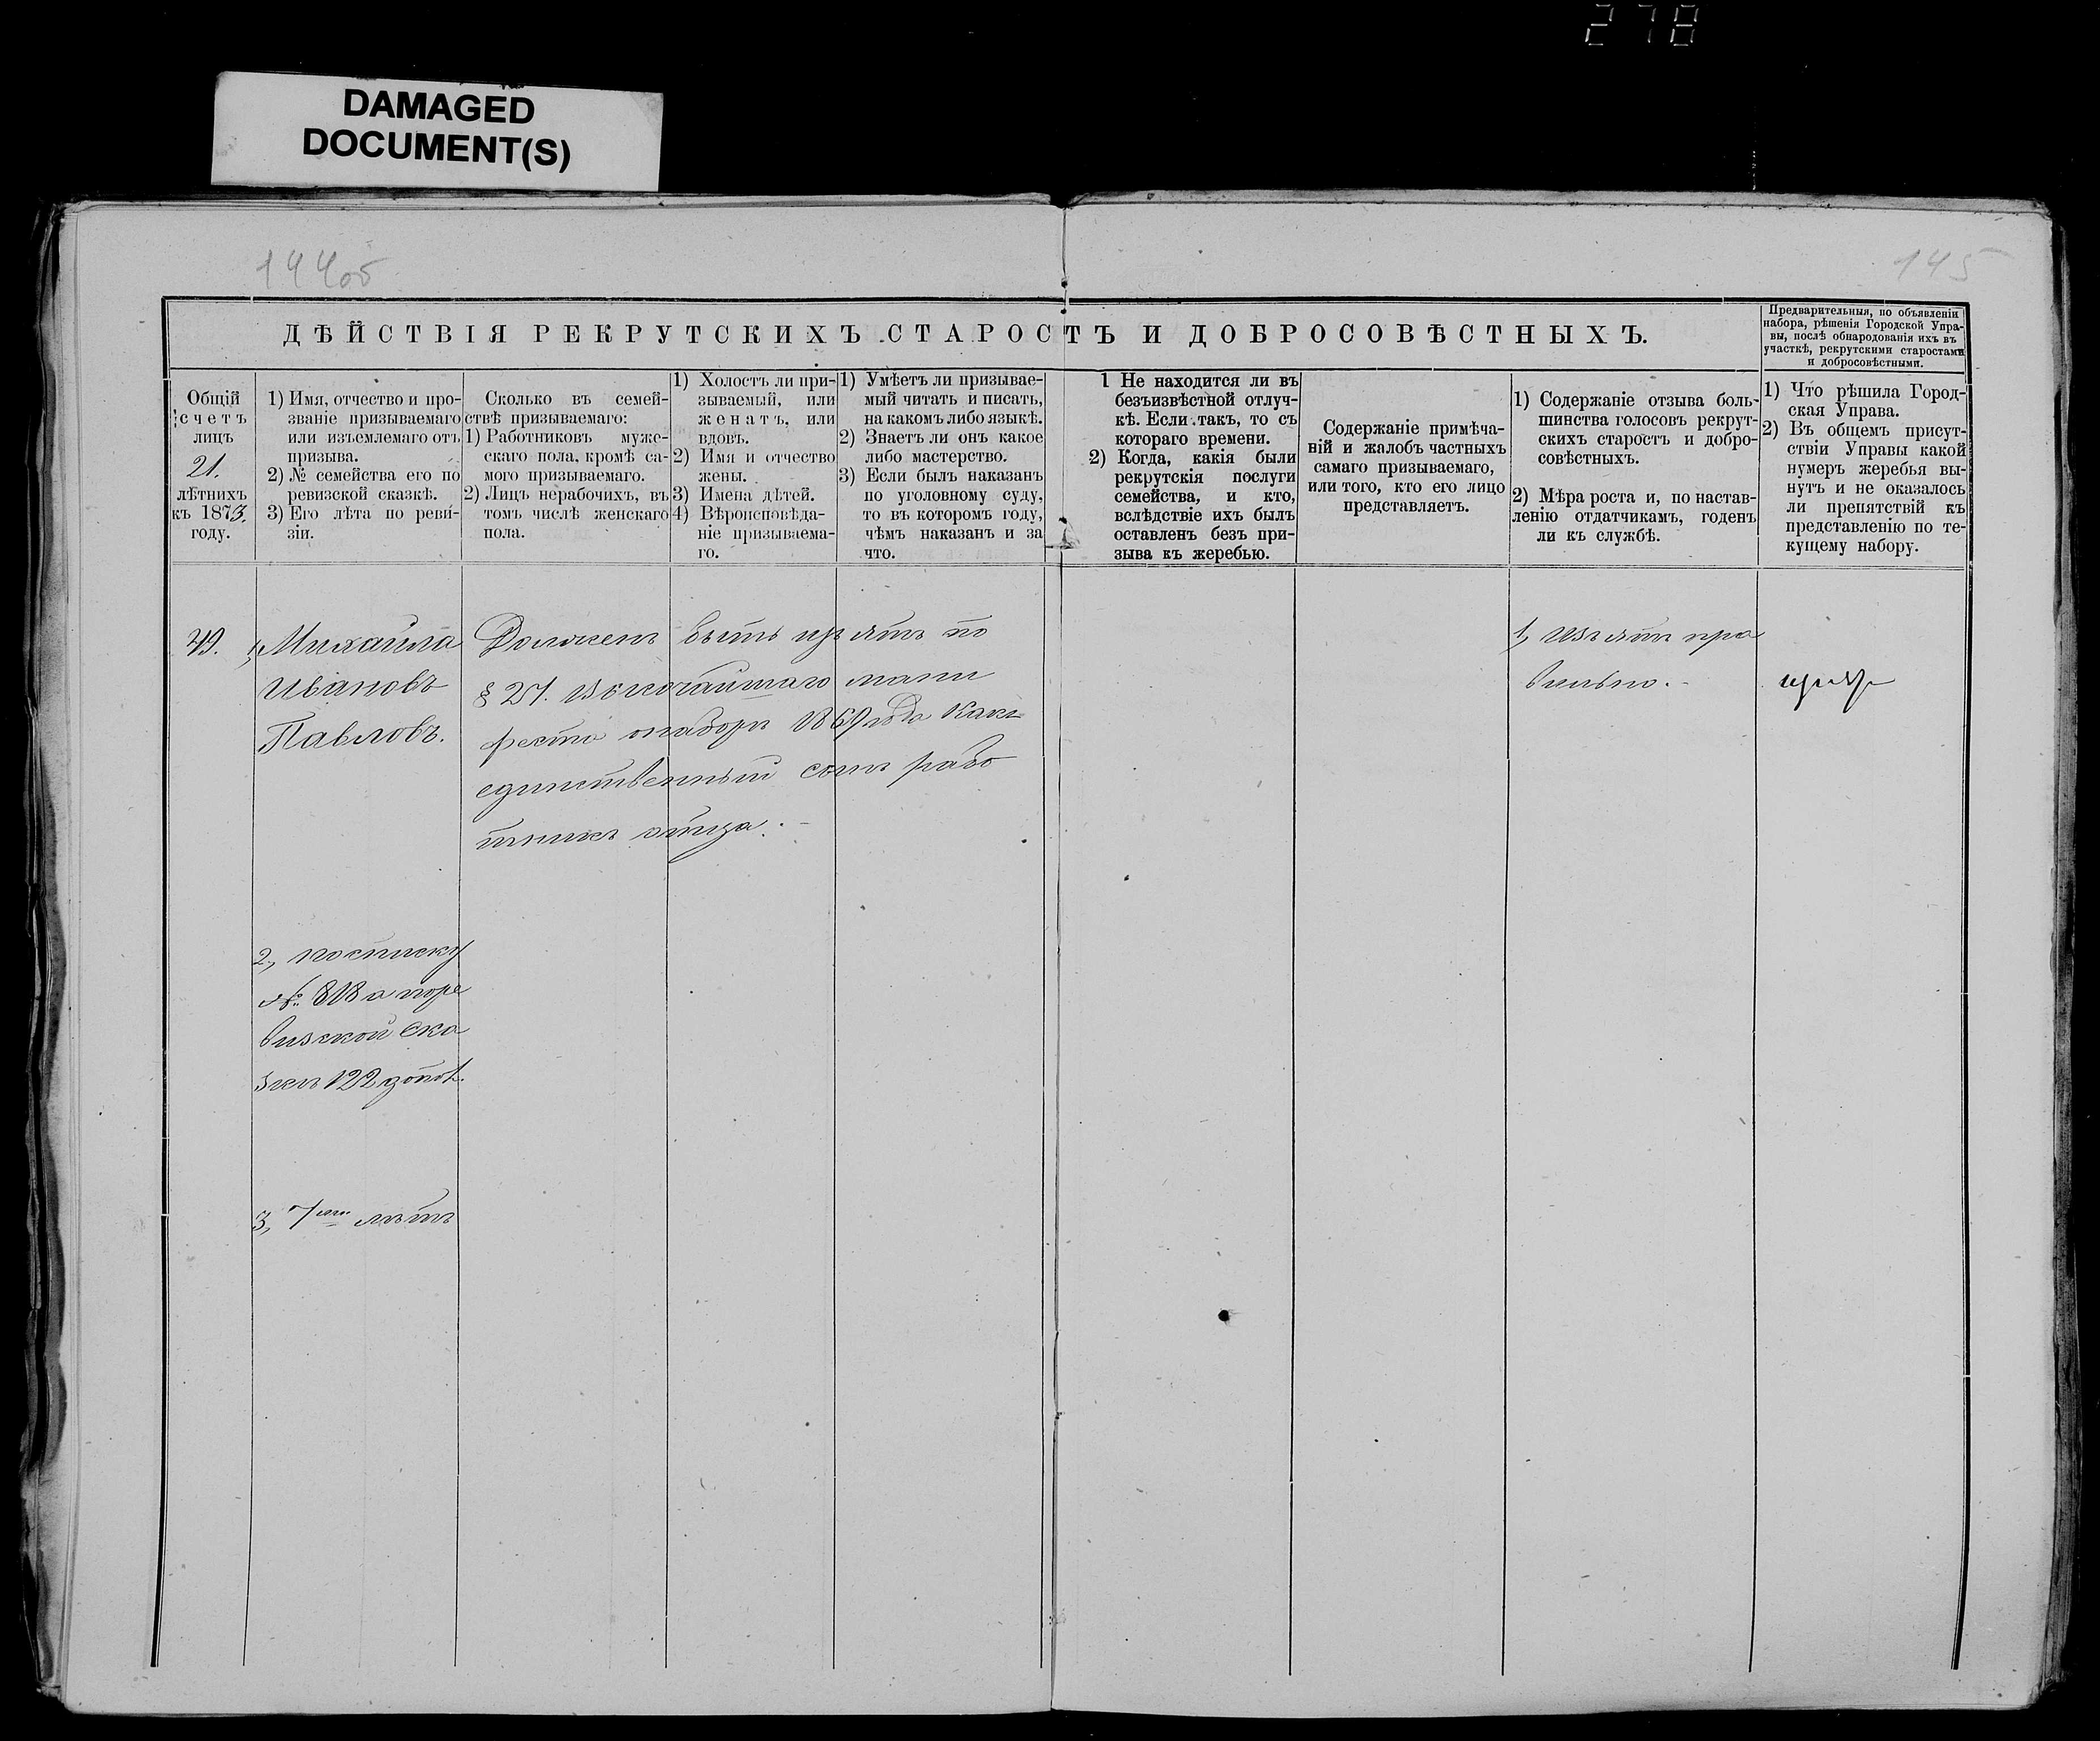 278
DAMAGED
DOCUMENT(S)
144об
145
ДѢЙСТВІЯ РЕКРУТСКИХЪ СТАРОСТЪ И ДОБРОСОВѢСТНЫХЪ.
Предварительныя, по объявленіи
набора, рѣшенія Городской Упра-
вы, послѣ обнародованія ихъ въ
участкѣ, рекрутскими старостами
и добросовѣстными.
Общій
счетъ
лицъ
21.
лѣтнихъ
къ 1873.
году.
1) Имя, отчество и про-
званіе призываемаго
или изъемлемаго отъ
призыва.
2) № семейства его по
ревизской сказкѣ.
3) Его лѣта по реви-
зіи.
Сколько въ семей-
ствѣ призываемаго:
1) Работниковъ муже-
скаго пола, кромѣ са-
мого призываемаго.
2) Лицъ нерабочихъ, въ
томъ числѣ женскаго
пола.
1) Холостъ ли при-
зываемый, или
женатъ, или
вдовъ.
2) Имя и отчество
жены.
3) Имена дѣтей.
4) Вѣроисповѣда-
ніе призываема-
го.
1) Умѣетъ ли призывае-
мый читать и писать,
на какомъ либо языкѣ.
2) Знаетъ ли онъ какое
либо мастерство.
3) Если былъ наказанъ
по уголовному суду,
то въ которомъ году,
чѣмъ наказанъ и за
что.
1 Не находится ли въ
безъизвѣстной отлуч-
кѣ. Если такъ, то съ
котораго времени.
2) Когда, какія были
рекрутскія послуги
семейства, и кто,
вслѣдствіе ихъ былъ
оставленъ безъ при-
зыва къ жеребью.
Содержаніе примѣча-
ній и жалобъ частныхъ
самаго призываемаго,
или того, кто его лицо
представляетъ.
1) Содержаніе отзыва боль-
шинства голосовъ рекрут-
скихъ старостъ и добро-
совѣстныхъ.
2) Мѣра роста и, по настав-
ленію отдатчикамъ, годенъ
ли къ службѣ.
1) Что рѣшила Город-
ская Управа.
2) Въ общемъ присут-
ствіи Управы какой
нумеръ жеребья вы-
нутъ и не оказалось
ли препятствій къ
представленію по те-
кущему набору.
49.
1, Михайла
Ивановъ
Павловъ.
Долженъ быть изъятъ по
§ 21. Высочайшаго мани
феста о наборѣ 1869 года какъ
единственный сынъ рабо
тникъ отца.
1, Изъятъ пра
вильно.
2, по списку
№ 818 а по ре
визской ска
зкѣ 122 допол.
3, 7ми лѣтъ